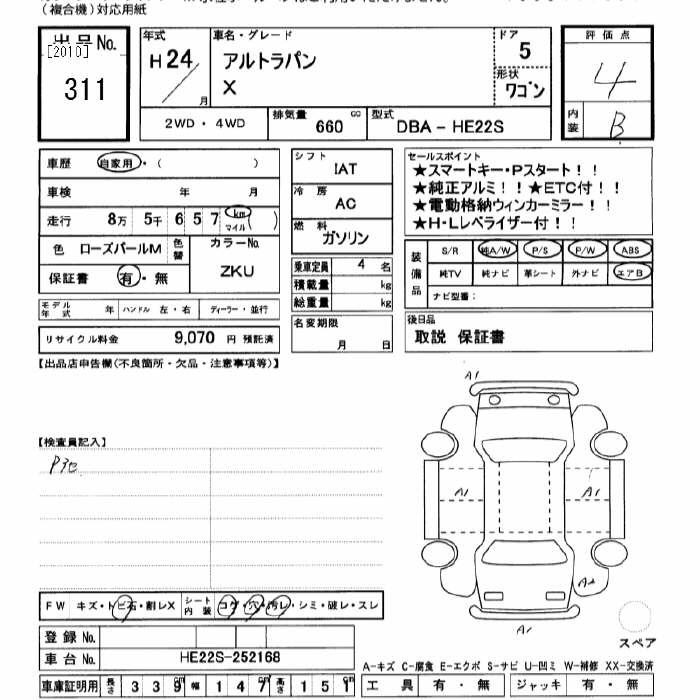 (複合機)対応用紙
出品No.
[2010]
311
年式
H24
月
車名・グレード
アルトラパン
X
ドア
5
形状
ワゴン
評価点
4
内装
B
2WD・4WD
排気量
660
cc
型式
DBA - HE22S
車歴 自家用・( )
車検 年 月
走行 8万 5千 6 5 7 km マイル ( )
色 ローズパールM 色替
カラーNo.
ZKU
保証書 有・無
モデル年式 年 ハンドル 左・右 ディーラー・並行
リサイクル料金 9,070 円 預託済
シフト
IAT
冷房
AC
燃料
ガソリン
乗車定員 4 名
積載量 kg
総重量 kg
名変期限
月 日
セールスポイント
★スマートキー・Pスタート!!
★純正アルミ!!★ETC付!!
★電動格納ウィンカーミラー!!
★H・Lレベライザー付!!
装備品
S/R 純A/W P/S P/W ABS
純TV 純ナビ 革シート 外ナビ エアB
ナビ型番:
後日品
取説 保証書
【出品店申告欄(不良箇所・欠品・注意事項等)】
【検査員記入】
A1
A1
A1
A2
A1
スペア
FW キズ・トビ石・割レX
シート内装 コゲ・穴・汚レ・シミ・破レ・スレ
登録No.
車台No. HE22S-252168
車庫証明用 長さ 339cm 幅 147cm 高さ 151cm
A-キズ C-腐食 E-エクボ S-サビ U-凹ミ W-補修 XX-交換済
工具 有・無 ジャッキ 有・無